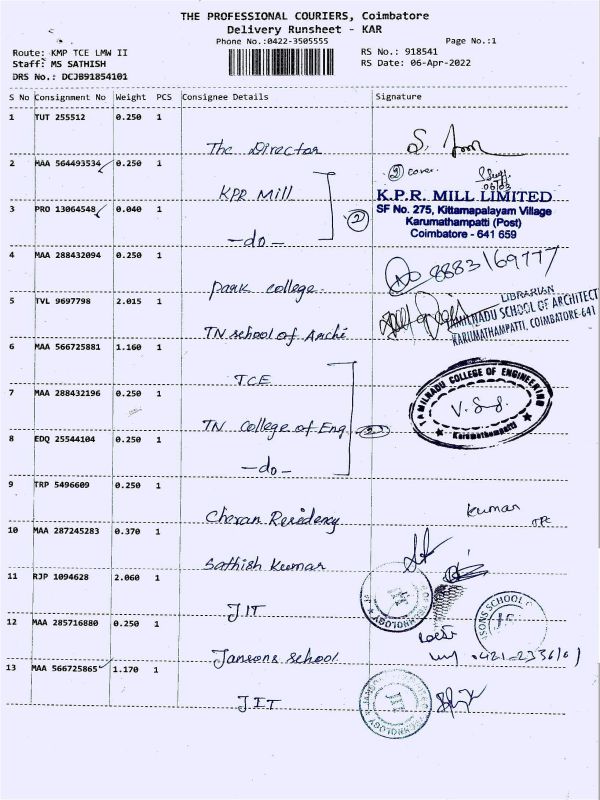 THE PROFESSIONAL COURIERS, Coimbatore
Delivery Runsheet - KAR
Phone No.:0422-3505555
Page No.:1
Route: KMP TCE LMW II
RS No.: 918541
Staff: MS SATHISH
RS Date: 06-Apr-2022
DRS No.: DCJB91854101
S No Consignment No Weight PCS Consignee Details Signature
1 TUT 255512 0.250 1
The Director
2 MAA 564493534 0.250 1
cover
KPR Mill
K.P.R. MILL LIMITED
SF No. 275, Kittampalayam Village
Karumathampatti (Post)
Coimbatore - 641 659
3 PRO 13064548 0.040 1
2
-do-
4 MAA 288432094 0.250 1
8883169777
Park college
5 TVL 9697798 2.015 1
LIBRARIAN
TAMILNADU SCHOOL OF ARCHITECT
KARUMATHAMPATTI, COIMBATORE-641
TN school of Archi
6 MAA 566725881 1.160 1
TCE
7 MAA 288432196 0.250 1
TAMILNADU COLLEGE OF ENGINEERING
Karumathampatti
TN College of Eng
8 EDQ 25544104 0.250 1
-do-
9 TRP 5496609 0.250 1
Kumar
Cheran Residency
10 MAA 287245283 0.370 1
Sathish Kumar
11 RJP 1094628 2.060 1
OF TECHNOLOGY
JIT
JIT
12 MAA 285716880 0.250 1
SONS SCHOOL
Jansons school
13 MAA 566725865 1.170 1
JIT
TECHNOLOGY
JIT